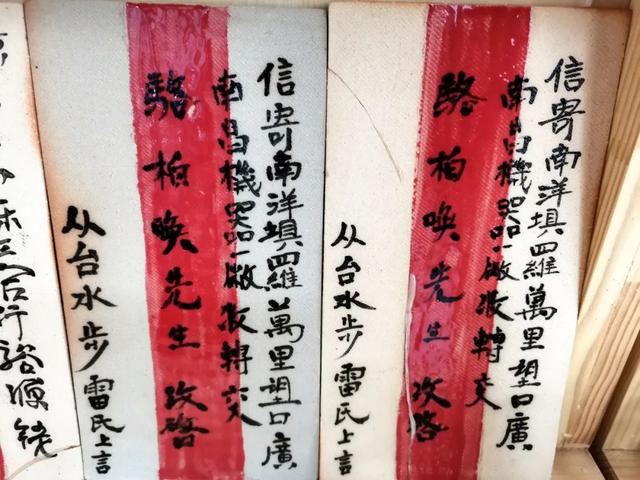 信寄南洋埧羅萬里望口廣
南昌機器廠收轉交
駱柏喚先生收啓
从台水步雷氏上言
信寄南洋埧羅萬里望口廣
南昌機器廠收轉交
駱柏喚先生收啓
从台水步雷氏上言
三合行裕源